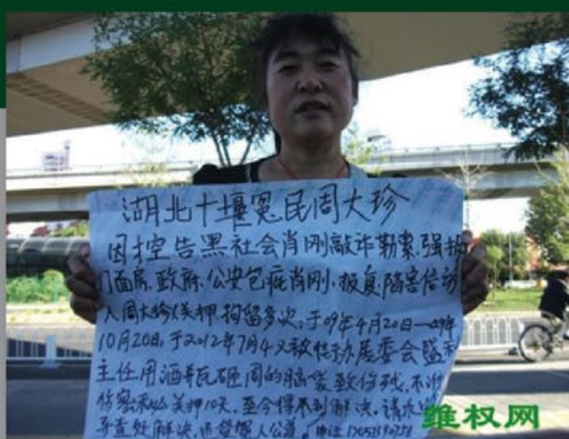 湖北十堰冤民周大珍
因控告黑社会肖刚敲诈勒索、强拆
门面房、政府、公安包庇肖刚、报复、陷害信访
人周大珍(关押、拘留多次、于09年4月20日—09年
10月20日、于2012年7月4又被
主任用酒并瓦砸周的脑袋致伤残、不
关押10天、至今得不到解决、请
查处解决、还受冤人公道
维权网